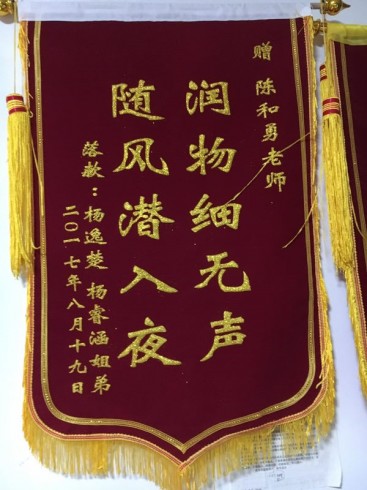 赠 陈和勇老师
润物细无声
随风潜入夜
落款：杨逸楚 杨睿涵姐弟
二〇一七年八月十九日